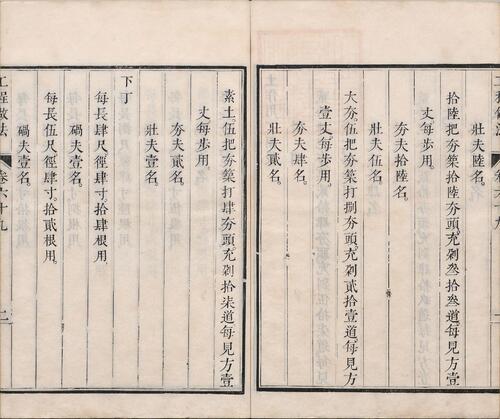 壯夫陸名。
拾陸把夯築拾陸夯頭。充剁叁拾叁道。每見方壹
丈。每步用。
夯夫拾陸名。
壯夫伍名。
大夯。伍把夯築打捌夯頭。充剁貳拾壹道。每見方
壹丈。每步用。
夯夫肆名。
壯夫貳名。
素土。伍把夯築打肆夯頭。充剁拾柒道。每見方壹
丈。每步用。
夯夫貳名。
壯夫壹名。
下丁
每長肆尺徑肆寸。拾肆根用。
碢夫壹名。
每長伍尺徑肆寸。拾貳根用。
碢夫壹名。
工程做法
卷六十九
二